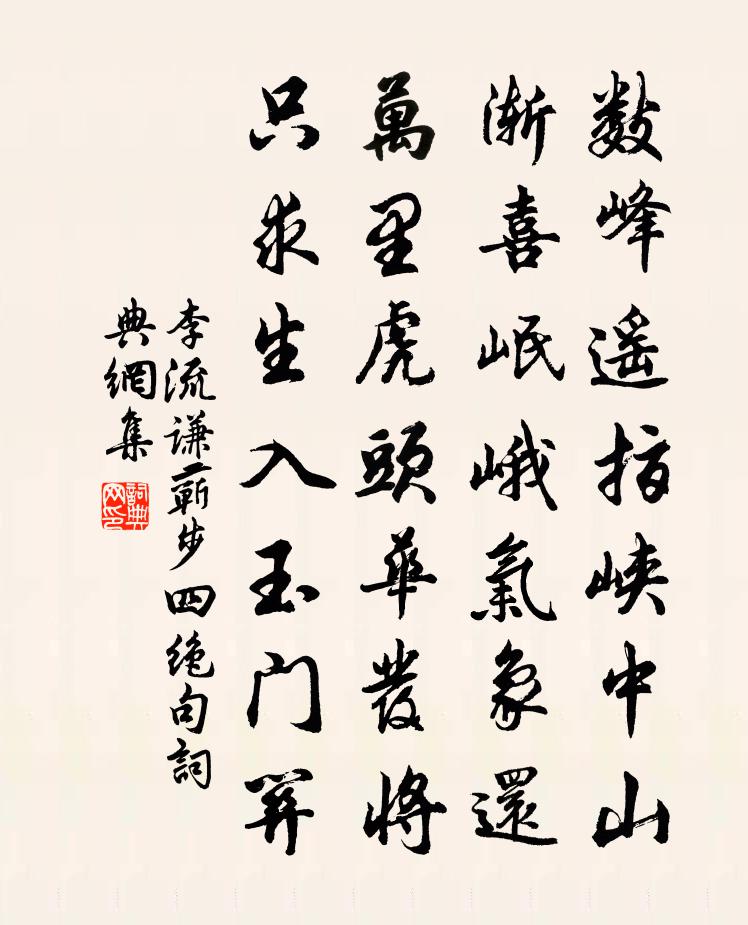 數峰遥指峽中山
漸喜岷峨氣象還
萬里虎頭華髮將
只求生入玉門關
李流谦蕲步四绝句詞
典網集
詞典網印